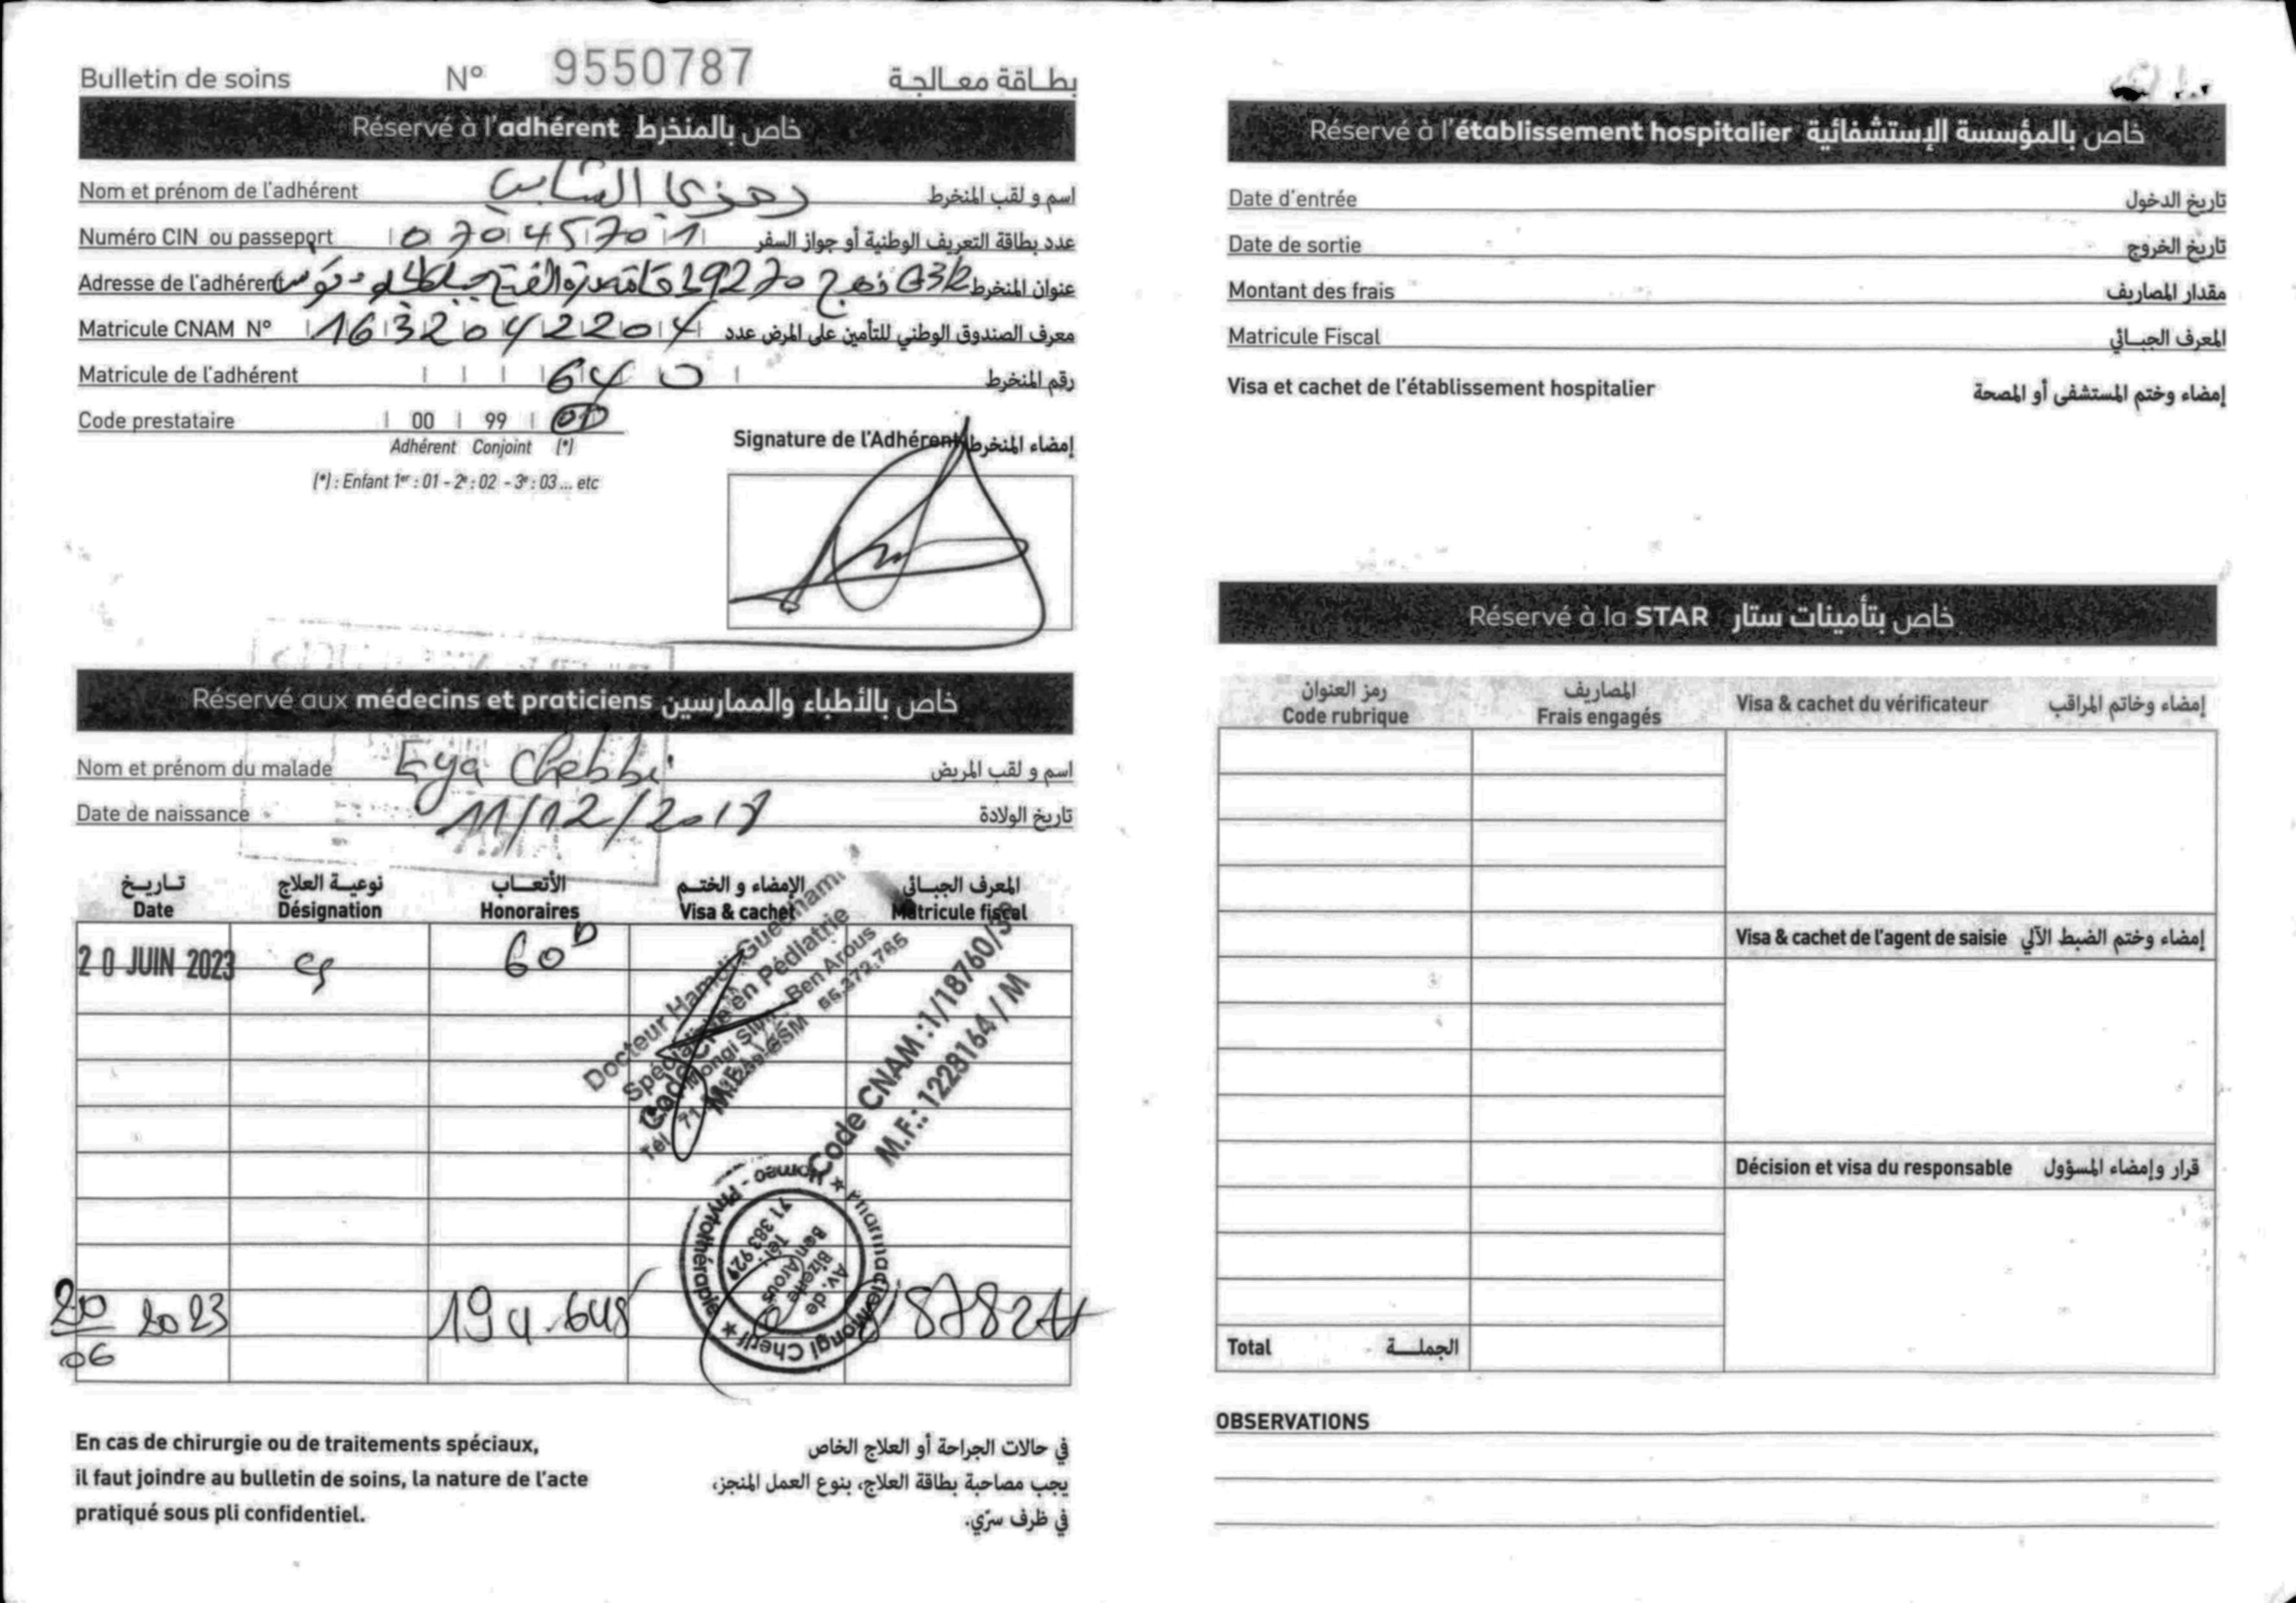 Bulletin de soins N° 9550787 بطاقة معالجة
Réservé à l'adhérent خاص بالمنخرط
Nom et prénom de l'adhérent رمزي الشابي اسم و لقب المنخرط
Numéro CIN ou passeport 07045701 عدد بطاقة التعريف الوطنية أو جواز السفر
Adresse de l'adhérent نهج 19270 عنوان المنخرط
Matricule CNAM N° 1632042204 معرف الصندوق الوطني للتأمين على المرض عدد
Matricule de l'adhérent 640 رقم المنخرط
Code prestataire 00 99 01
Adhérent Conjoint (*)
(*) : Enfant 1er : 01 - 2e : 02 - 3e : 03 ... etc
Signature de l'Adhérent إمضاء المنخرط
Réservé aux médecins et praticiens خاص بالأطباء والممارسين
Nom et prénom du malade Eya Chebbi اسم و لقب المريض
Date de naissance 11/12/2018 تاريخ الولادة
تاريخ نوعية العلاج الأتعاب الإمضاء و الختم المعرف الجبائي
Date Désignation Honoraires Visa & cachet Matricule fiscal
20 JUIN 2023 cs 60D
Docteur Hamdi Guezmami
Spécialiste en Pédiatrie
Ben Arous
Code CNAM :1/18760/38
M.F.: 1228164 / M
Pharmacie Mongi Cherif ★ Homéo - Phytothérapie ★
Av. de Bizerte Ben Arous Tél: 71 383 929
20/06 2023 194.648 87824
En cas de chirurgie ou de traitements spéciaux,
il faut joindre au bulletin de soins, la nature de l'acte
pratiqué sous pli confidentiel.
في حالات الجراحة أو العلاج الخاص
يجب مصاحبة بطاقة العلاج، بنوع العمل المنجز،
في ظرف سرّي.
Réservé à l'établissement hospitalier خاص بالمؤسسة الإستشفائية
Date d'entrée تاريخ الدخول
Date de sortie تاريخ الخروج
Montant des frais مقدار المصاريف
Matricule Fiscal المعرف الجبائي
Visa et cachet de l'établissement hospitalier إمضاء وختم المستشفى أو المصحة
Réservé à la STAR خاص بتأمينات ستار
رمز العنوان المصاريف
Code rubrique Frais engagés Visa & cachet du vérificateur إمضاء وخاتم المراقب
Visa & cachet de l'agent de saisie إمضاء وختم الضبط الآلي
Décision et visa du responsable قرار وإمضاء المسؤول
Total الجملة
OBSERVATIONS